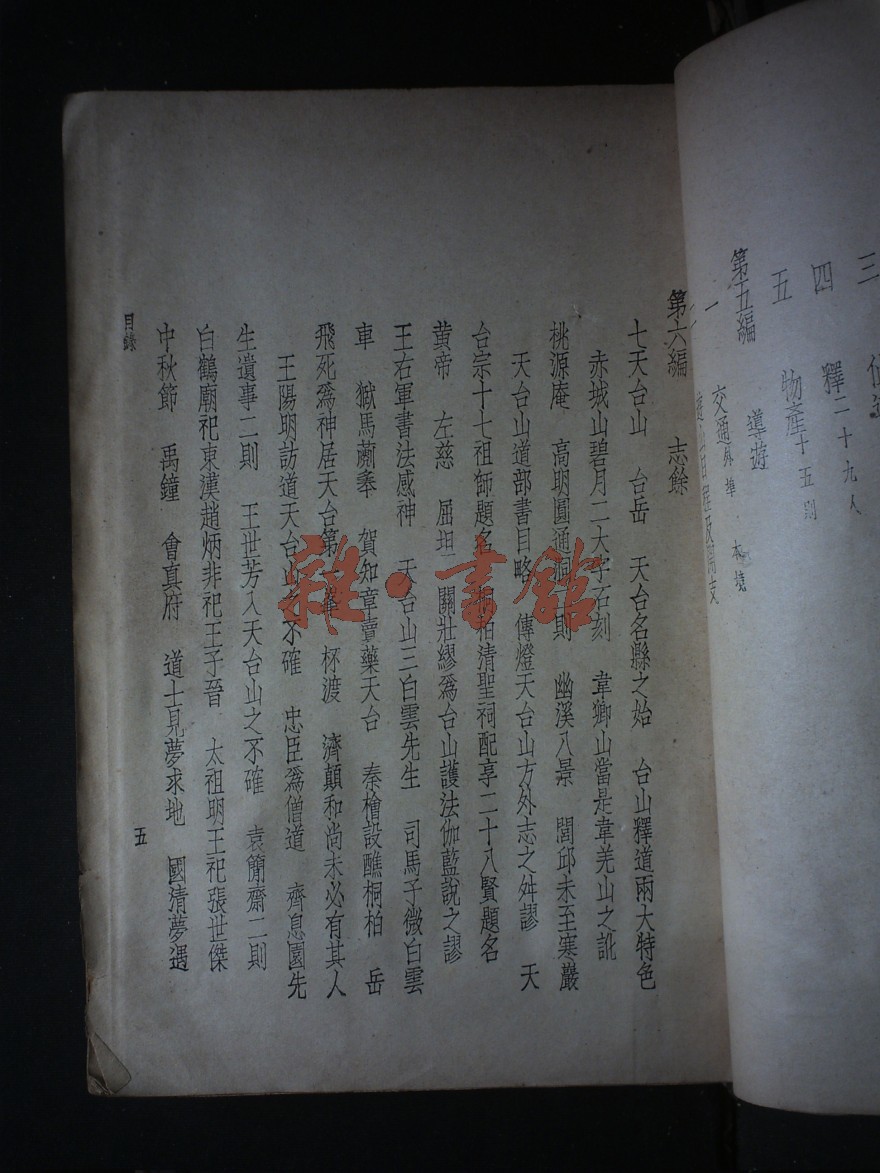 三
四　釋二十九人
五　物產十五則
第五編　導遊
一　交通
第六編　志餘
七天台山　台岳　天台名縣之始　台山釋道兩大特色
赤城山碧月二大字石刻　韋鄉山當是韋羌山之訛
桃源庵　高明圓通洞　則　幽溪八景　閭邱未至寒巖
天台山道部書目略　傳燈天台山方外志之舛謬　天
台宗十七祖師題名　桐柏清聖祠配享二十八賢題名
黃帝　左慈　屈坦　關壯繆爲台山護法伽藍說之謬
王右軍書法感神　天台山三白雲先生　司馬子微白雲
車　狱馬蘭　賀知章賣藥天台　秦檜設醮桐柏　岳
飛死爲神居天台第一峯　杯渡　濟顛和尚未必有其人
王陽明訪道天台山之不確　忠臣爲僧道　齊息園先
生遺事二則　王世芳入天台山之不確　袁簡齋二則
白鶴廟祀東漢趙炳非祀王子晉　太祖明王祀張世傑
中秋節　禹鐘　會真府　道士見夢求地　國清夢遇
目錄
五
雜·書館